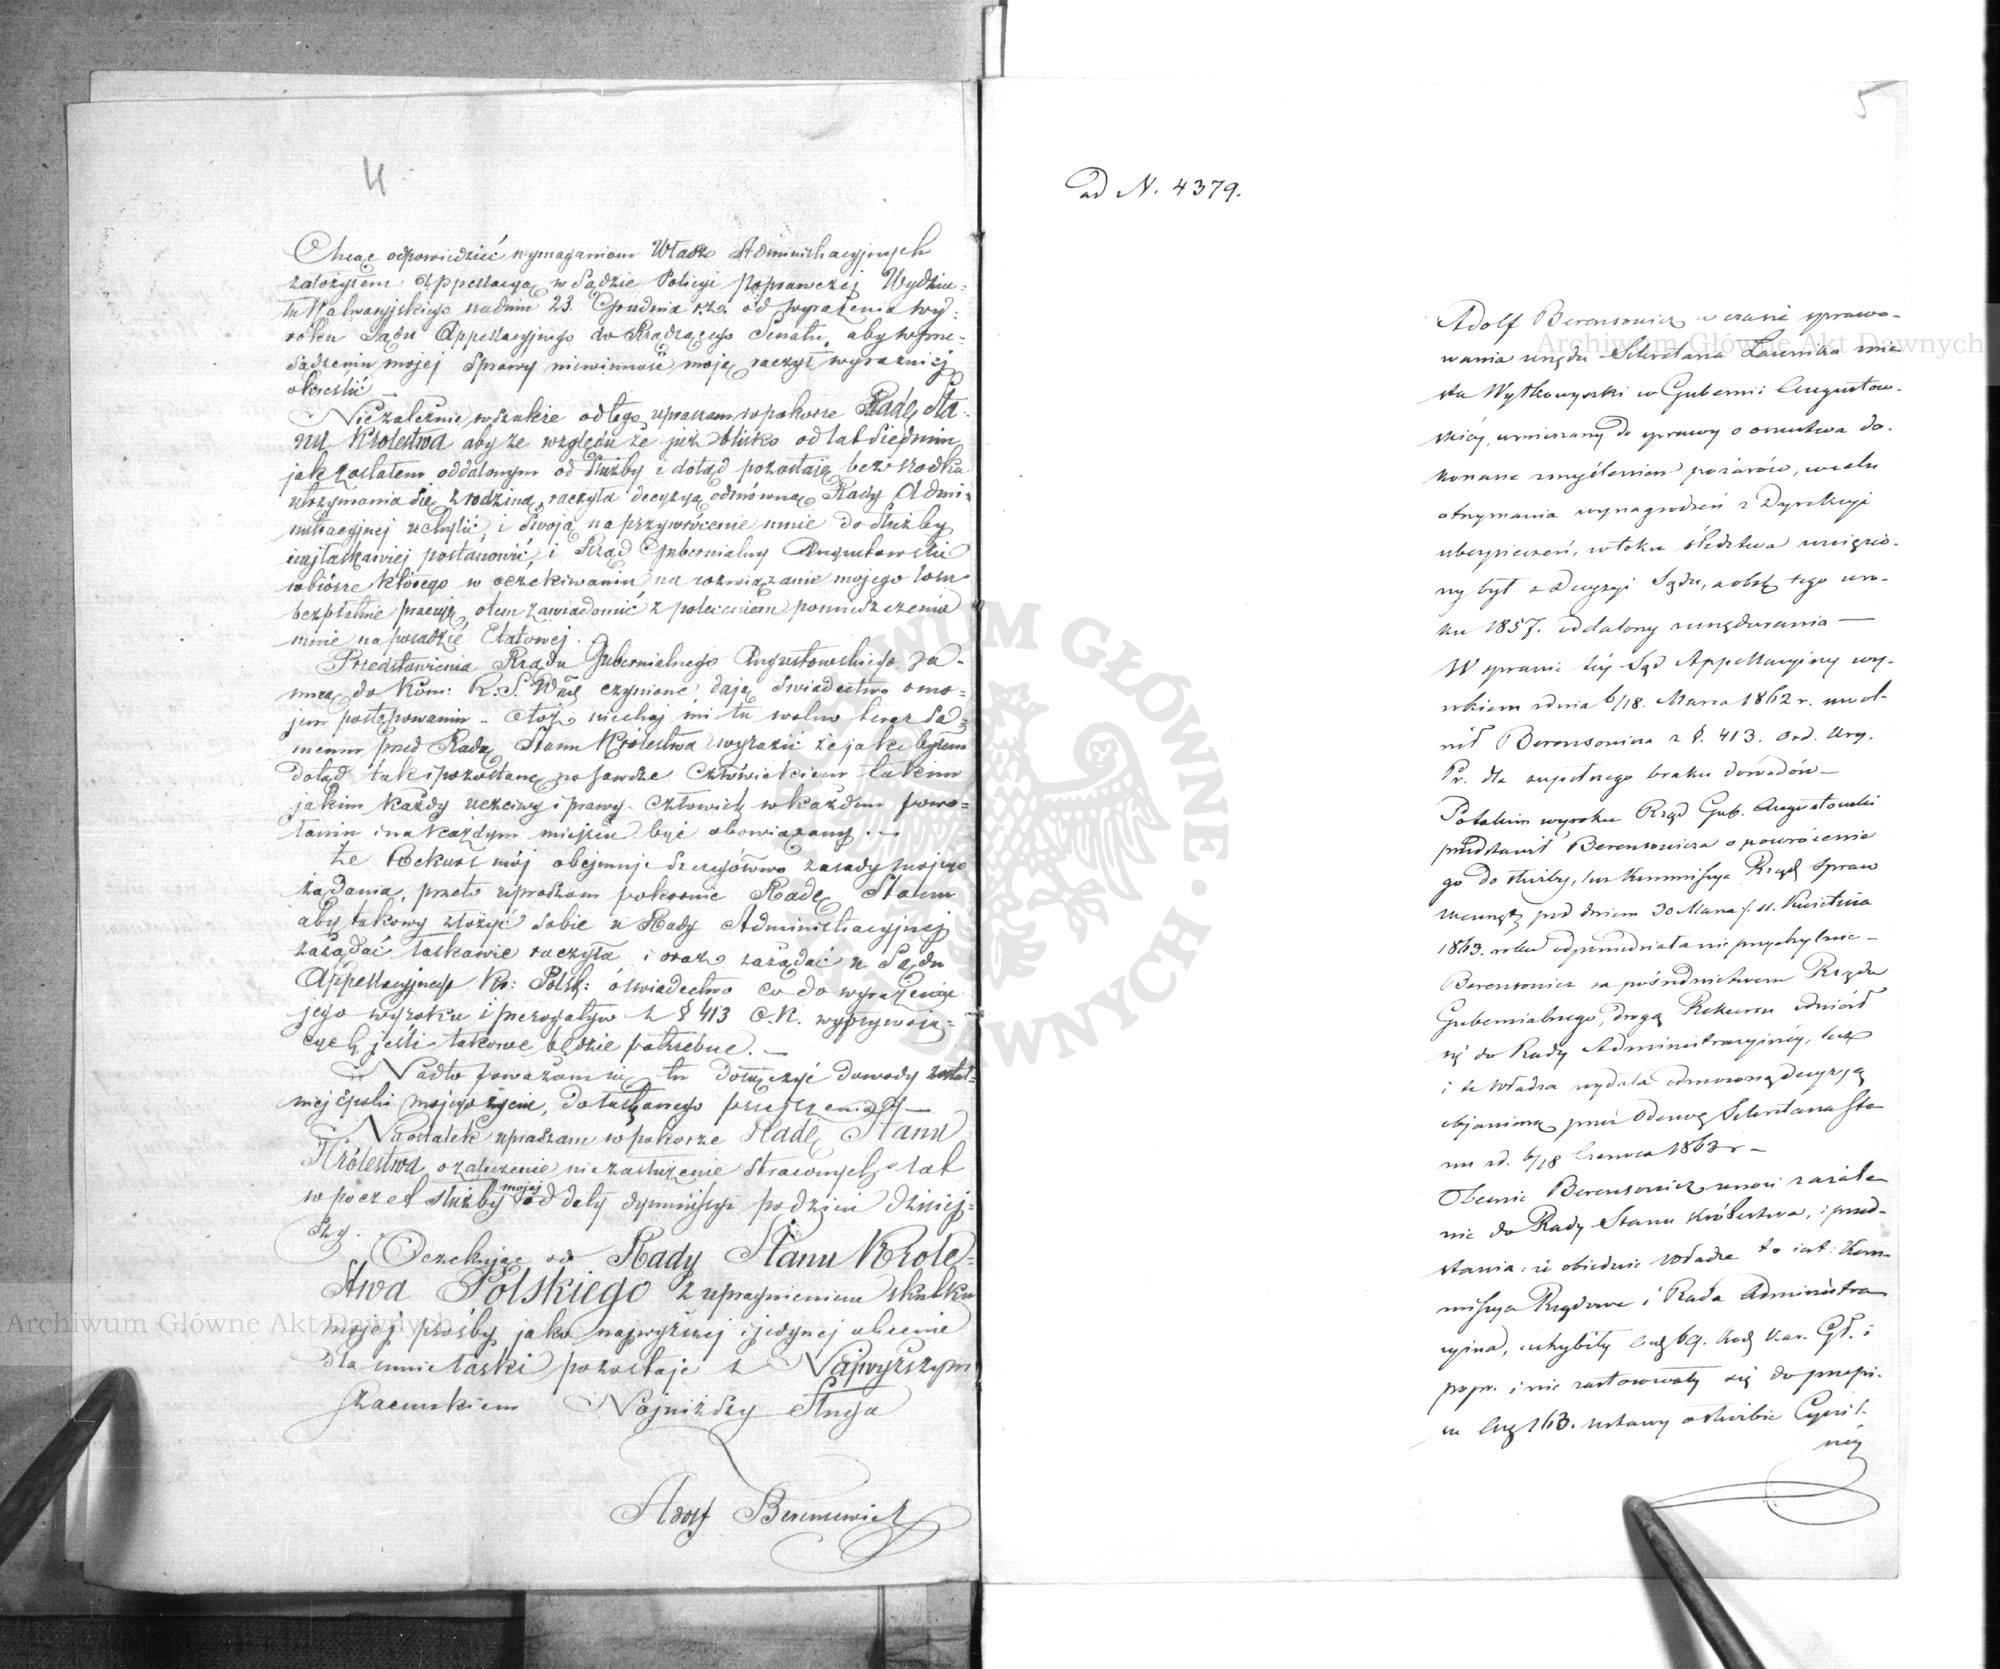 4
Chcąc odpowiedzieć wymaganiom Władz Administracyjnych
założyłem Appellacyą w Sądzie Policyi Poprawczej Wydzia-
łu Kalwaryjskiego na dniu 23 Grudnia r. z. od wyrażenia wy-
roku Sądu Appellacyjnego do Rządzącego Senatu, aby w
sądzeniu mojej sprawy niewinność moję raczył wyraźniej
określić —
Niezależnie wszakże od tego upraszam w pokorze Radę Sta-
nu Królestwa aby ze względu że już blisko od lat siedmiu
jak zostałem oddalonym od służby i dotąd pozostaję bez środka
utrzymania się z rodziną, raczyła decyzyą odmówną Rady Admi-
nistracyjnej uchylić, i swoją na przywrócenie mnie do służby
najłaskawiej postanowić, i Rząd Gubernialny Augustowski
w biórze którego w oczekiwaniu na rozwiązanie mojego losu
bezpłatnie pracuję, o tem zawiadomić z poleceniem pomieszczenia
mnie na posadzie Etatowej.
Przedstawienia Rządu Gubernialnego Augustowskiego za
mną do Kom: R. S. W. czynione dają świadectwo o mo-
jem postępowaniu – otóż niechaj mi tu wolno teraz sa-
memu przed Radą Stanu Królestwa wyrazić że jak byłem
dotąd tak i pozostanę na zawsze człowiekiem takim
jakim każdy uczciwy i prawy człowiek w każdem powo-
łaniu i na każdym miejscu być obowiązany. —
Że Rekurs mój obejmuje szczegółowo zasady mojego
żądania, przeto upraszam pokornie Radę Stanu
aby takowy złożyć sobie u Rady Administracyjnej
zażądać łaskawie raczyła i oraz zażądać u Sądu
Appellacyjnego Kr: Polsk: o świadectwo co do wyrażenia
jego wyroku i prerogatyw z § 413 O.K. wypływają-
cych jeśli takowe będzie potrzebne. —
Nadto poważam się tu dołączyć dowody
epoki mojego życia, —
Naostatek upraszam w pokorze Radę Stanu
Królestwa o zaliczenie niezasłużenie straconych lat
w poczet służby mojej od daty dymissyi po dzień dzisiej-
szy.
Oczekując od Rady Stanu Króle-
stwa Polskiego z upragnieniem skutku
mojej prośby jako najwyższej i jedynej obecnie
dla mnie łaski pozostaję z Najwyższym
szacunkiem Najniższy Sługa
Adolf Berensewicz
5
ad N. 4379.
Adolf Berensowicz w czasie sprawo-
wania urzędu Sekretarza Ławnika mia-
sta Wyłkowyszki w Gubernii Augustow-
skiéj, wmieszany do sprawy o oszustwa do-
konane zmyśleniem pożarów, w celu
otrzymania wynagrodzeń z Dyrekcyi
ubezpieczeń, w toku śledztwa uwięzio-
ny był z Decyzyi Sądu, a obok tego w ro-
ku 1857. oddalony z urzędowania —
W sprawie téj Sąd Appellacyjny wy-
rokiem z dnia 6/18. Marca 1862 r. uwol-
nił Berensowicza z §. 413. Ord. Krym.
Pr. dla zupełnego braku dowodów —
Po takim wyroku Rząd Gub. Augustowski
przedstawił Berensowicza o powrócenie
go do służby, lecz Kommissya Rząd. Spraw
Wewnętz pod dniem 30 Marca / 11. Kwietnia
1863. roku odpowiedziała nieprzychylnie —
Berensowicz za pośrednictwem Rządu
Gubernialnego, drogą Rekursu udniósł
się do Rady Administracyjnéj, lecz
i ta Władza wydała odmowną decyzyą
objawioną przez Odezwę Sekretarza Sta-
nu z d. 6/18 Czerwca 1863 r —
Obecnie Berensowicz wnosi zażale-
nie do Rady Stanu Królestwa, i przed-
stawia: iż obiedwie Władze to jest: Kom-
missya Rządowa i Rada Administra-
cyjna, uchybiły art 69. Kod Kar. Gł. i
popr. i nie zastosowały się do przepi-
su Art 163. ustawy o służbie Cywil-
néj
Archiwum Główne Akt Dawnych
Archiwum Główne Akt Dawnych
ARCHIWUM GŁÓWNE AKT DAWNYCH